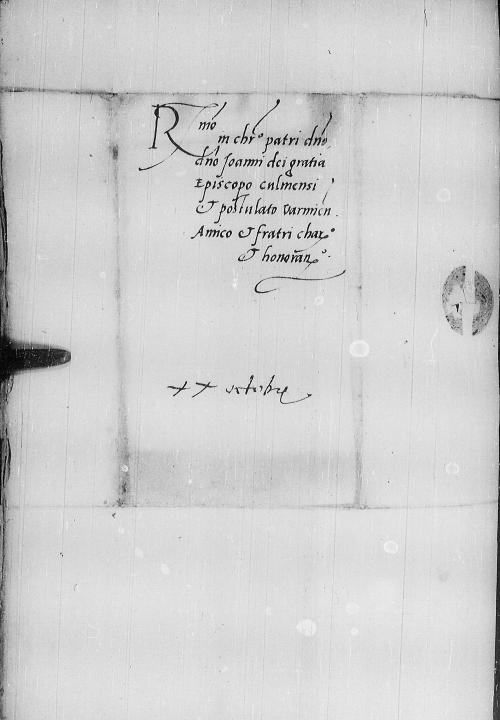 Rmo
in chro patri dno,
dno Joanni dei gratia
Episcopo Culmensi
et postulato Varmien.
Amico et fratri charo
et honoran.
xx octobr